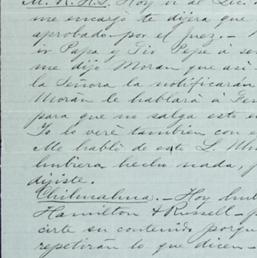 M. R. H. S. Hoy vi al Lic.
me encargó te dijera que
aprobado por el juez.
Papa y Tio Pepe á
me dijo Moran que asi
la Señora la notificarán
Moran le hablará á
para que no salga este
Yo lo veré tambien con
Me habló de este L.
hubiera hecho nada,
dijiste.
Chihuahua. - Hoy
Hamilton & Russell
cirte su contenido
repetirán lo que dicen